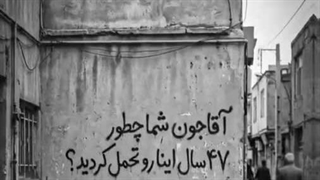 آقاجون شما چطور
۴۷ سال اینا رو تحمل کردید؟